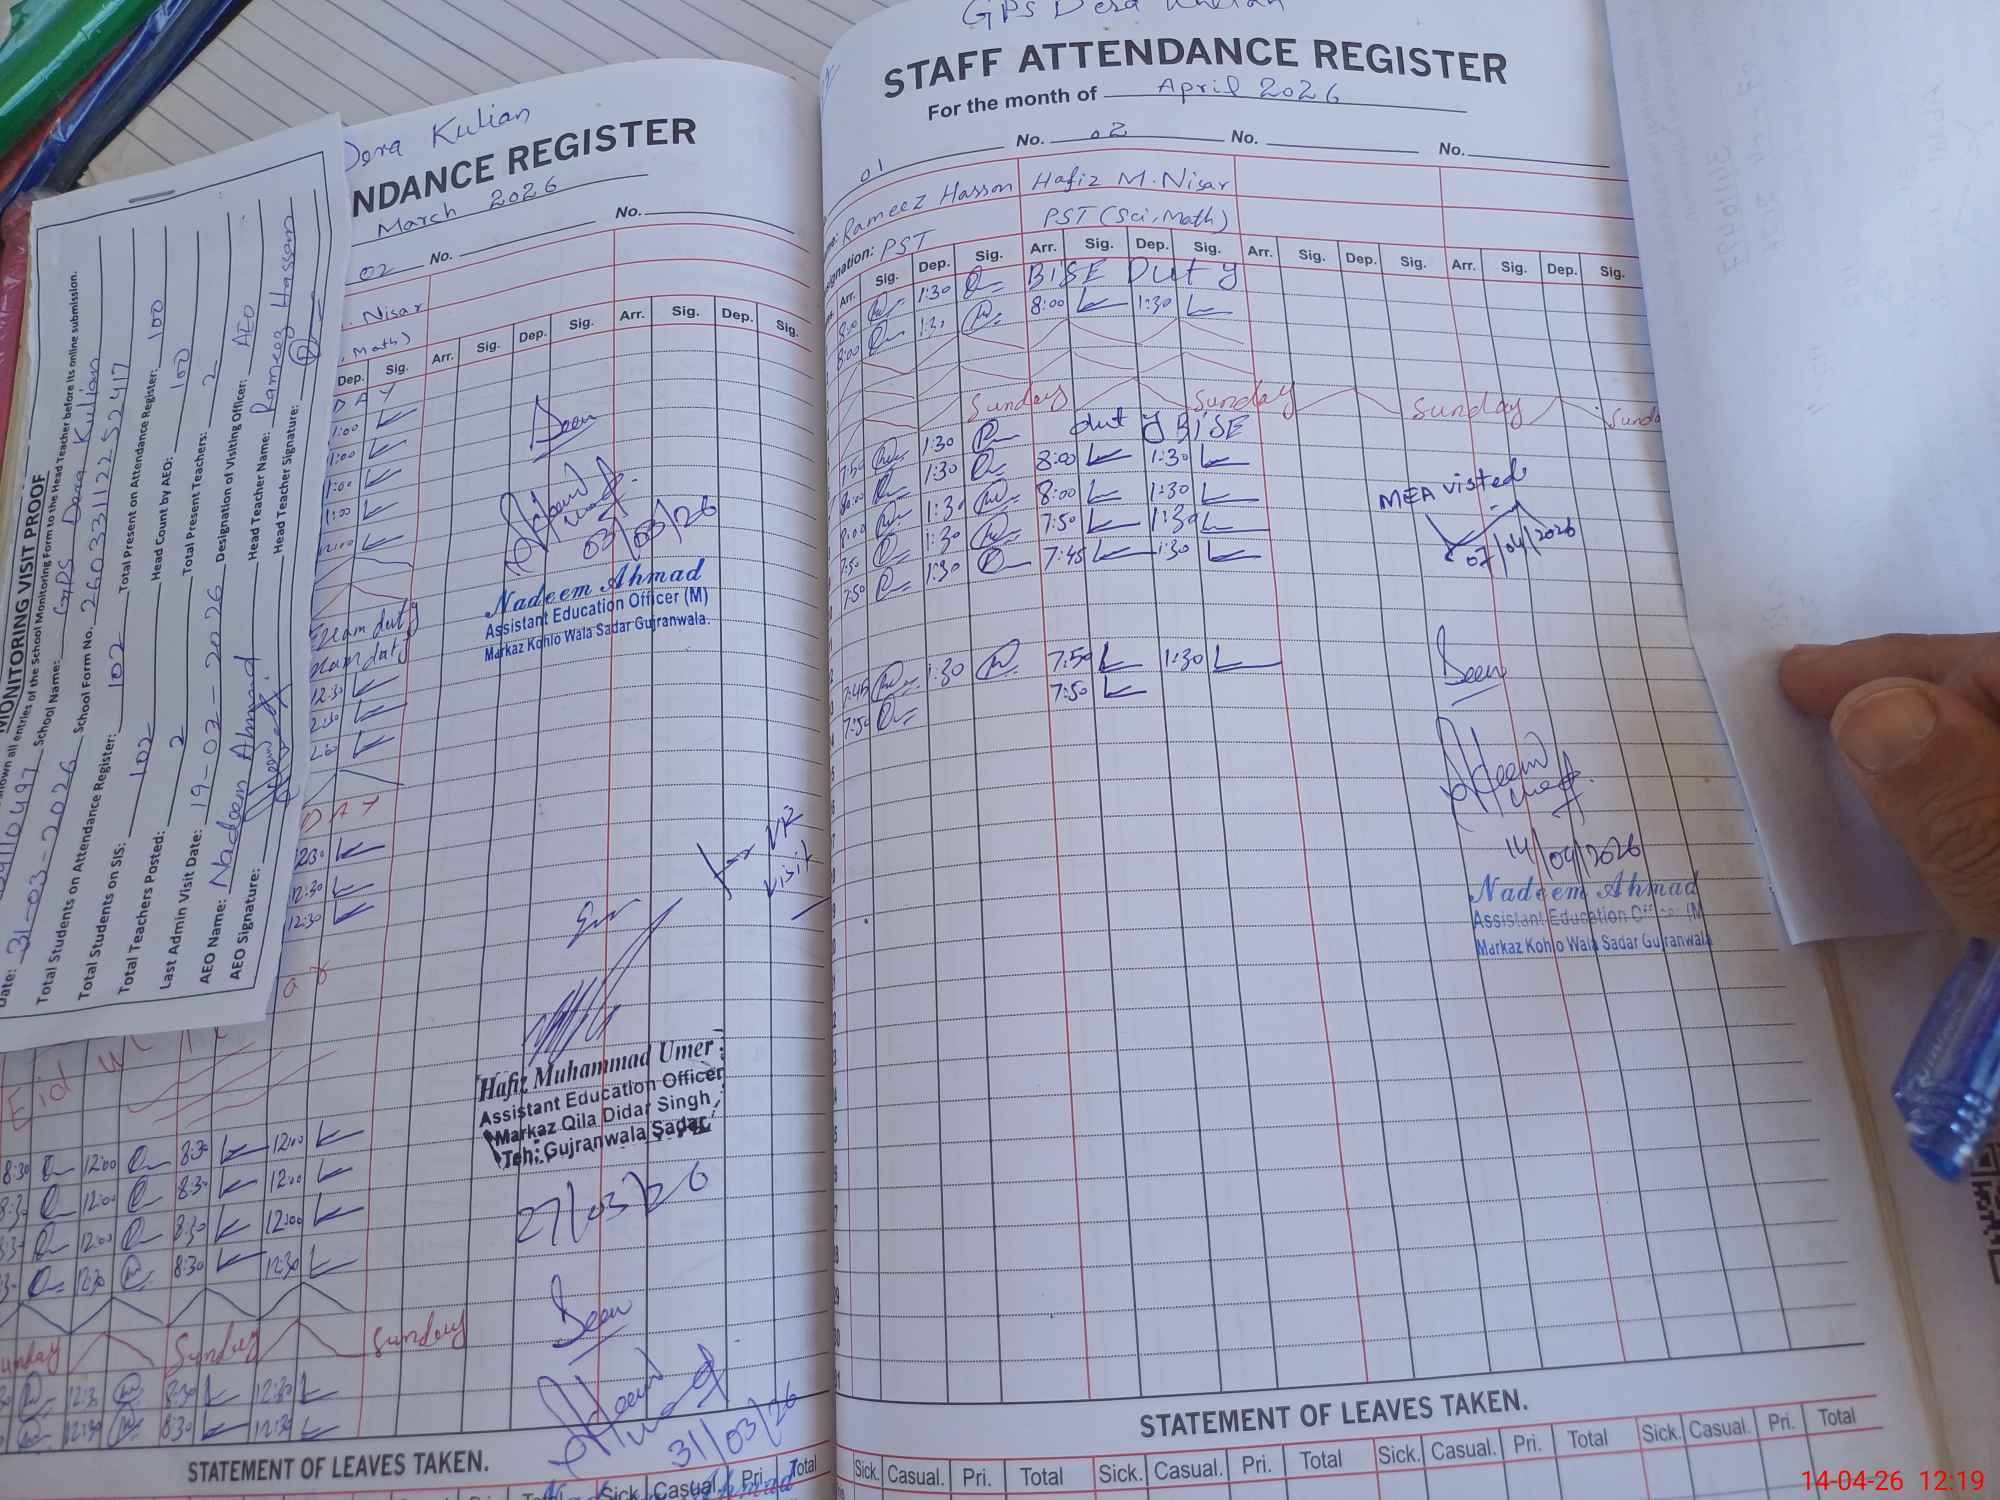 MONITORING VISIT PROOF
all entries of the School Monitoring Form to the Head Teacher before its online submission.
School Name: GPS Dera Kulian
Date: 31-03-2026 School Form No. 26033112252417
Total Students on Attendance Register: 102 Total Present on Attendance Register: 100
Total Students on SIS: 102 Head Count by AEO: 100
Total Teachers Posted: 2 Total Present Teachers: 2
Last Admin Visit Date: 19-02-2026 Designation of Visiting Officer: AEO
AEO Name: Nadeem Ahmad Head Teacher Name: Rameez Hassan
AEO Signature: Head Teacher Signature:
Dera Kulian
NDANCE REGISTER
March 2026
02 No. No.
. Nisar
, Math)
Dep. Sig. Arr. Sig. Dep. Sig. Arr. Sig. Dep. Sig.
D A Y
1:00
1:00
1:00
1:00
12:00
03/03/26
Nadeem Ahmad
Assistant Education Officer (M)
Markaz Kohlo Wala Sadar Gujranwala.
Exam duty
Exam duty
12:30
D A Y
12:30
12:30
12:30
visit
Hafiz Muhammad Umer
Assistant Education Officer
Markaz Qila Didar Singh
Teh: Gujranwala Sadar
27/03/26
Eid
8:30 12:00 8:30 12:00
8:30 12:00 8:30 12:00
12:00 8:30 12:00
12:30 8:30 12:30
Sunday Sunday
12:30 8:30 12:30
12:30 8:30 12:30
31/03/26
STATEMENT OF LEAVES TAKEN.
Sick. Casual. Pri. Total
GPS Dera Khelan
STAFF ATTENDANCE REGISTER
For the month of April 2026
01 No. 02 No. No.
Rameez Hassan Hafiz M. Nisar
PST PST (Sci, Math)
Arr. Sig. Dep. Sig. Arr. Sig. Dep. Sig. Arr. Sig. Dep. Sig. Arr. Sig. Dep. Sig.
8:00 1:30 BISE Duty
8:00 1:30 8:00 1:30
Sunday Sunday Sunday Sunda
7:50 1:30 duty BISE
8:00 1:30 8:00 1:30
8:00 1:30 8:00 1:30
7:50 1:30 7:50 1:30
7:50 1:30 7:45 1:30
MEA visted
07/04/2026
7:45 1:30 7:50 1:30
7:50 7:50
14/04/2026
Nadeem Ahmad
Assistant Education Officer (M
Markaz Kohlo Wala Sadar Gujranwala
STATEMENT OF LEAVES TAKEN.
Sick. Casual. Pri. Total Sick. Casual. Pri. Total Sick. Casual. Pri. Total Sick. Casual. Pri. Total
14-04-26 12:19